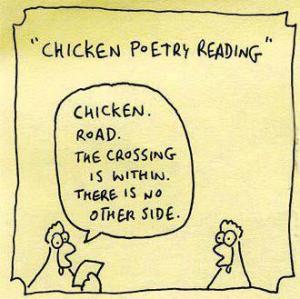 "CHICKEN POETRY READING"
CHICKEN.
ROAD.
THE CROSSING
IS WITHIN.
THERE IS NO
OTHER SIDE.